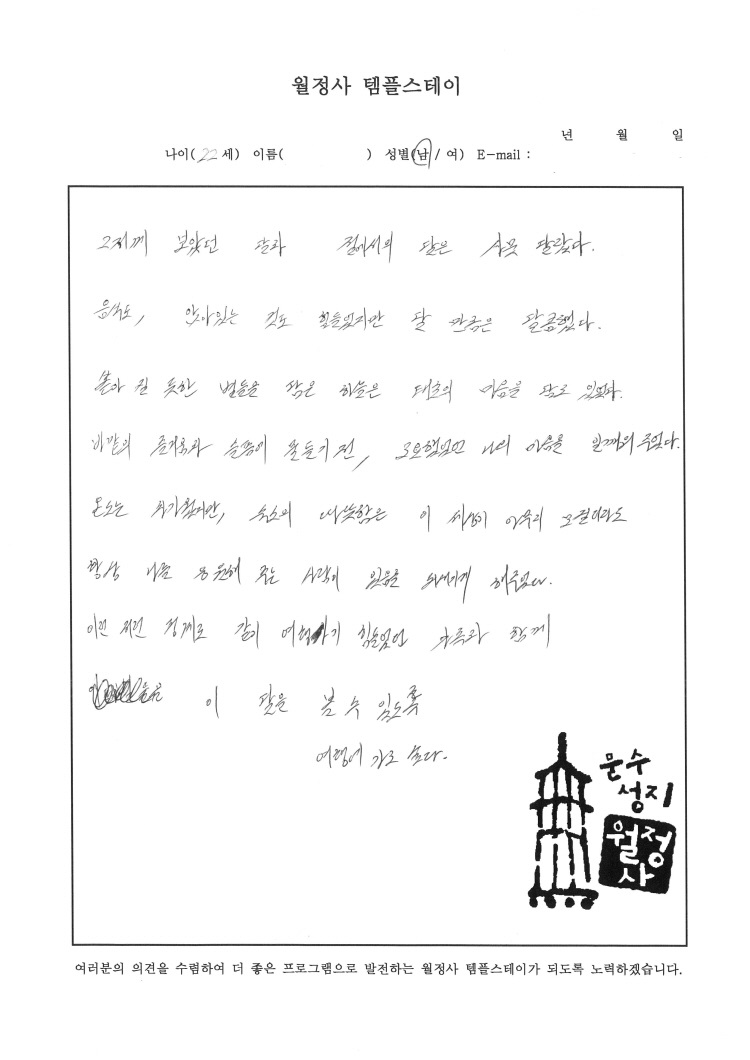 월정사 템플스테이
년 월 일
나이(22세) 이름( ) 성별(남/ 여) E-mail :
그저께 보았던 달과 절에서의 달은 사뭇 달랐다.
음식도, 앉아있는 것도 힘들었지만 달 만큼은 달콤했다.
쏟아 질 듯한 별들을 담은 하늘은 태초의 마음을 담고 있었다.
바깥의 즐거움과 슬픔에 물들기 전, 고요했었던 나의 마음을 일깨워 주었다.
온도는 차가웠지만, 숙소의 따뜻함은 이 세상이 아무리 고전이라도
항상 나를 응원해 주는 사람이 있음을 되새기게 해주었다.
이런 저런 핑계로 같이 여행가기 힘들었던 가족과 함께
이 달을 볼 수 있도록
여행에 가고 싶다.
문수
성지
월정
사
여러분의 의견을 수렴하여 더 좋은 프로그램으로 발전하는 월정사 템플스테이가 되도록 노력하겠습니다.